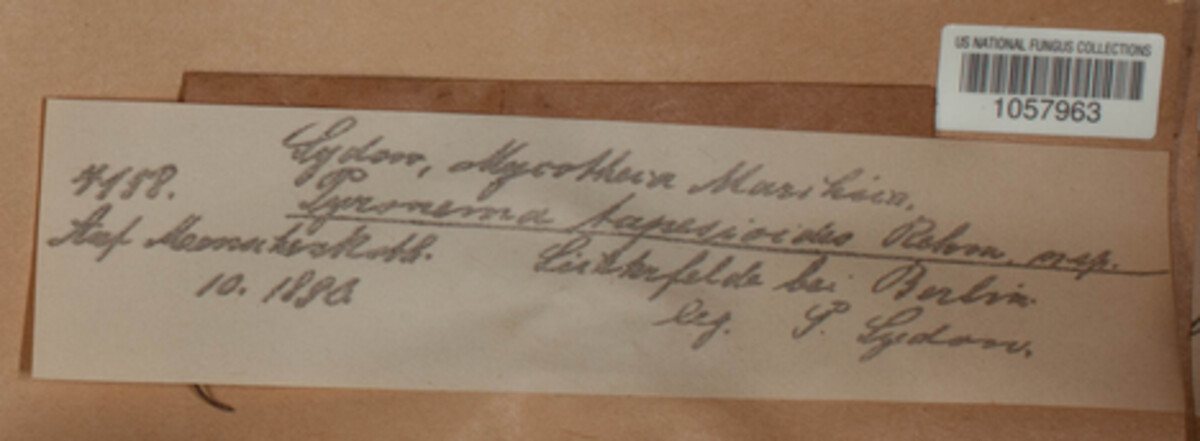 US NATIONAL FUNGUS COLLECTIONS
1057963
Sydow, Mycotheca Marchica.
Pyronema tapesioides Rehm. n. sp.
Auf
Lichterfelde bei Berlin
10. 1890
leg. P. Sydow.